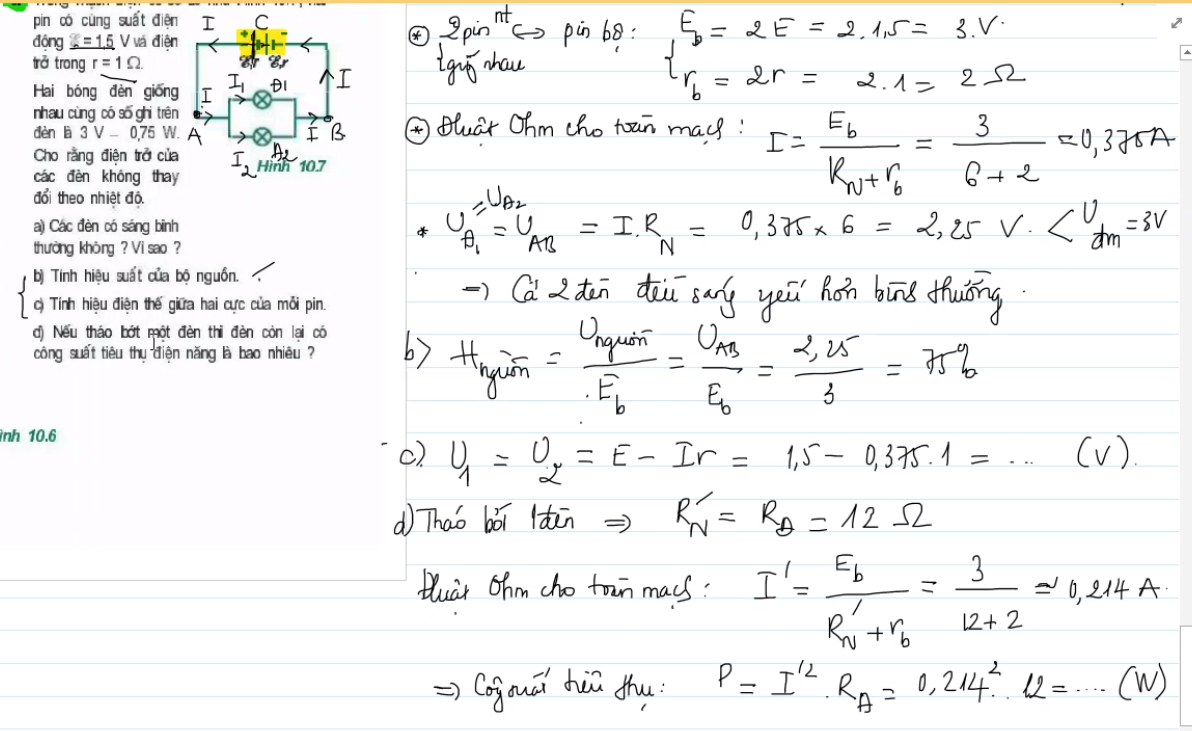 pin có cùng suất điện
động ℰ = 1,5 V và điện
trở trong r = 1 Ω.
Hai bóng đèn giống
nhau cùng có số ghi trên
đèn là 3 V – 0,75 W.
Cho rằng điện trở của
các đèn không thay
đổi theo nhiệt độ.
a) Các đèn có sáng bình
thường không ? Vì sao ?
b) Tính hiệu suất của bộ nguồn.
c) Tính hiệu điện thế giữa hai cực của mỗi pin.
d) Nếu tháo bớt một đèn thì đèn còn lại có
công suất tiêu thụ điện năng là bao nhiêu ?
I C
+ -
ℰ,r ℰ,r
I₁ Đ1 I
I
A I B
I₂ Đ2
Hình 10.7
ình 10.6
* 2 pin nt ⇔ pin bộ : E_b = 2E = 2.1,5 = 3.V
giống nhau r_b = 2r = 2.1 = 2 Ω
* Đluật Ohm cho toàn mạch : I = E_b / (R_N + r_b) = 3 / (6 + 2) = 0,375A
* U_Đ1 = U_Đ2 = U_AB = I.R_N = 0,375 x 6 = 2,25 V. < U_đm = 3V
=> Cả 2 đèn đều sáng yếu hơn bình thường.
b) H_nguồn = U_nguồn / E_b = U_AB / E_b = 2,25 / 3 = 75%
c). U₁ = U₂ = E - Ir = 1,5 - 0,375.1 = ... (V).
d) Tháo bớt 1 đèn => R'_N = R_Đ = 12 Ω
Đluật Ohm cho toàn mạch : I' = E_b / (R'_N + r_b) = 3 / (12 + 2) ≈ 0,214 A.
=> Công suất tiêu thụ : P = I'². R_Đ = 0,214². 12 = .... (W)